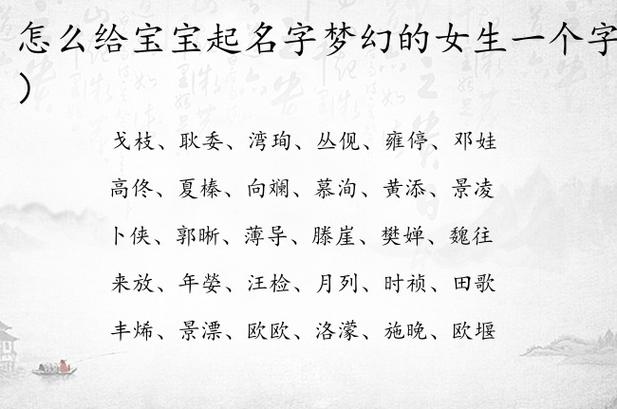 怎么给宝宝起名字梦幻的女生一个字
）
戈枝、耿委、湾珣、丛伣、雍停、邓娃
高佟、夏榛、向斓、慕洵、黄添、景凌
卜侠、郭晰、薄导、滕崖、樊婵、魏往
来放、年嫈、汪检、月列、时祯、田歌
丰烯、景漂、欧欧、洛濛、施晚、欧堰